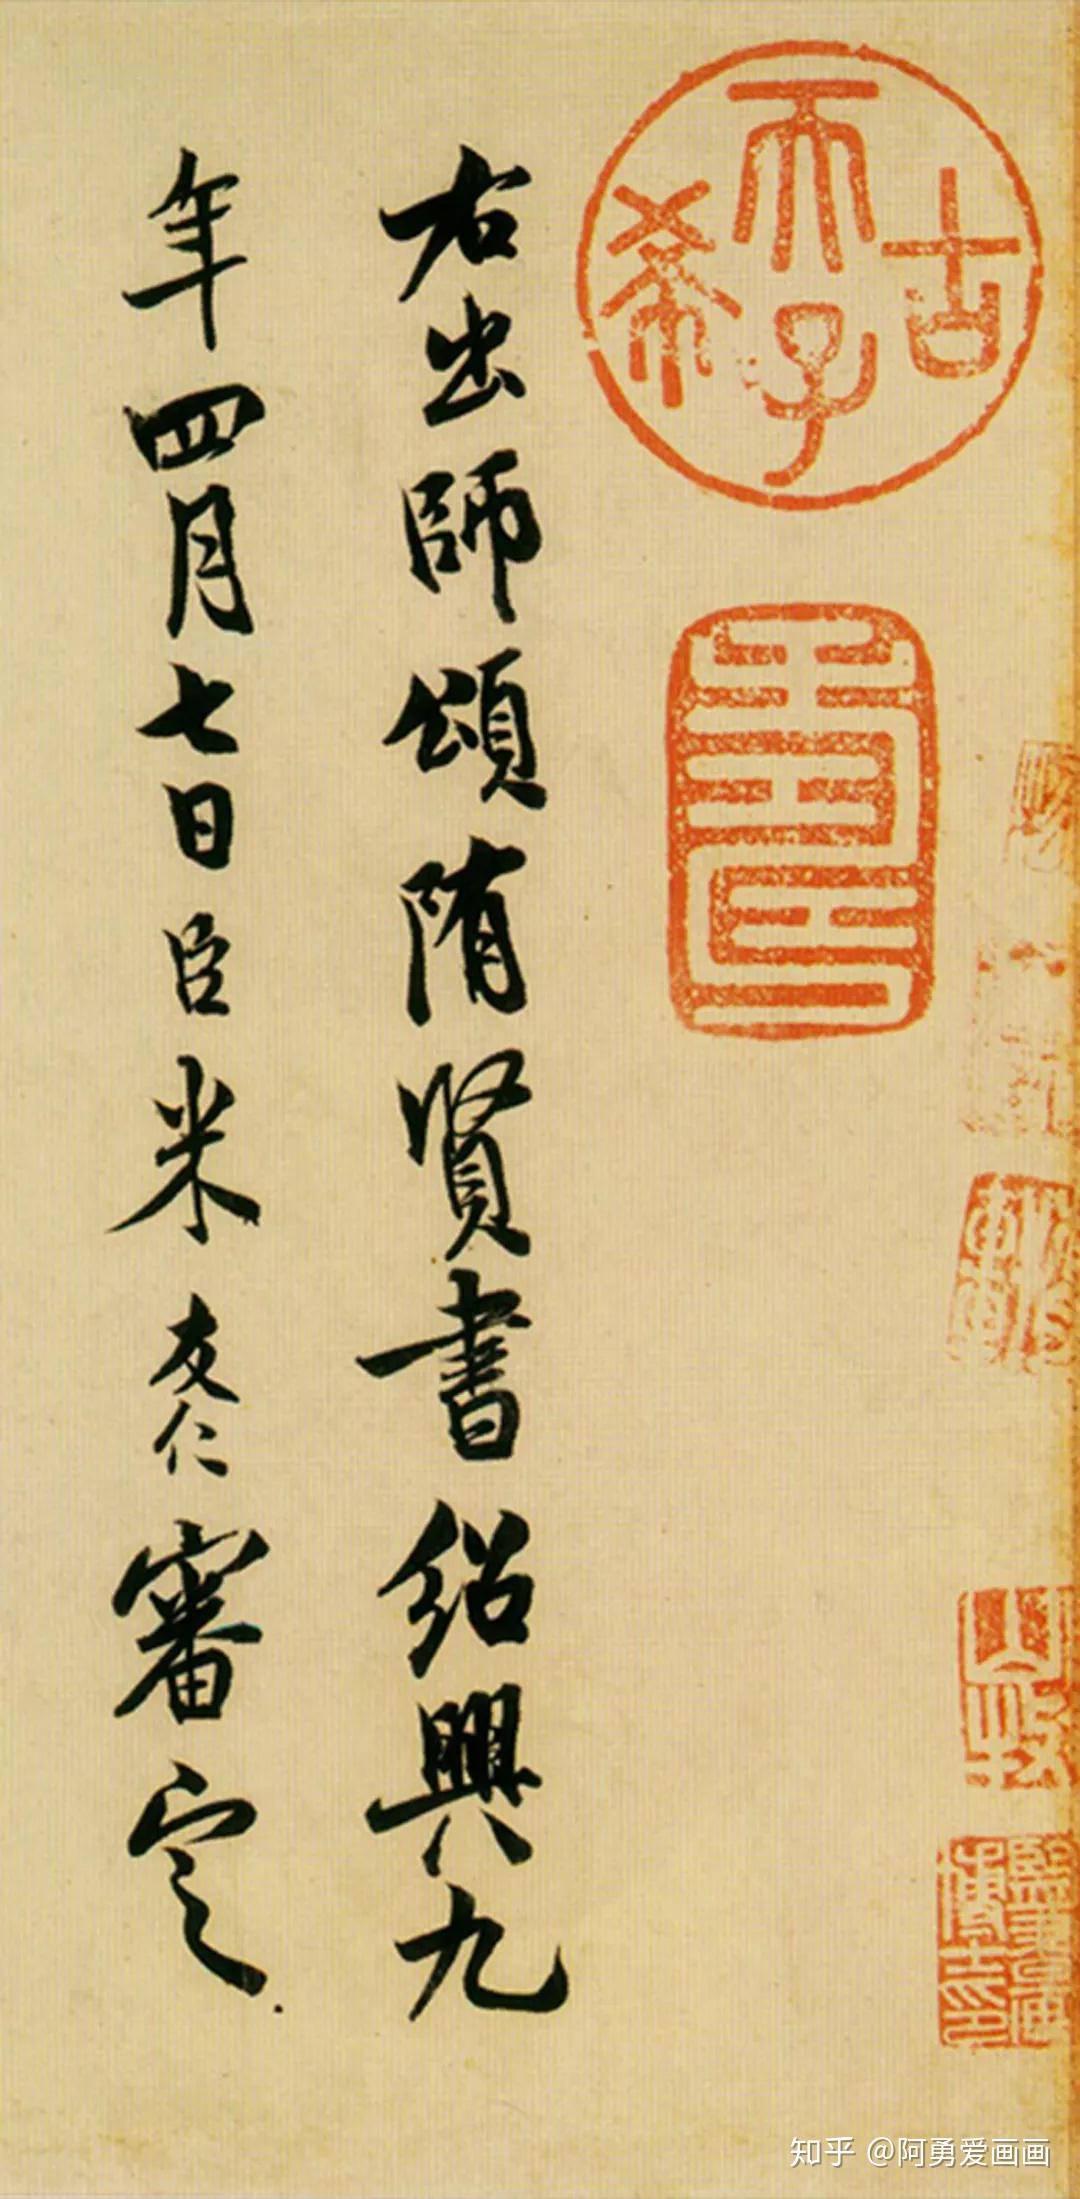 古希天子
壽
右出師頌隋賢書紹興九
年四月七日臣米友仁審定
知乎 @阿勇爱画画